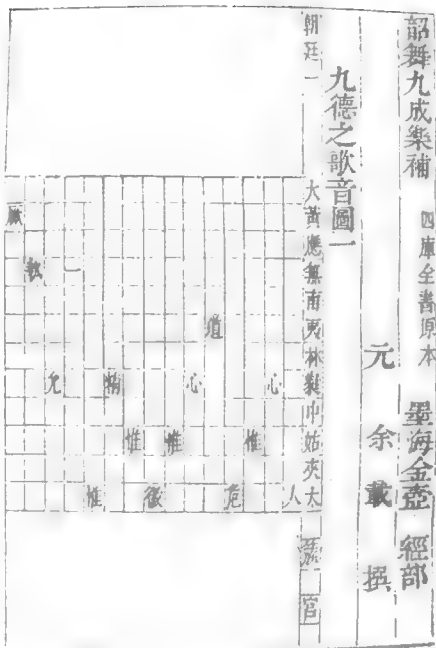 韶舞九成樂補 四庫全書原本 墨海金壺 經部
元 余載 撰
九德之歌音圖一
朝廷一 大黃應無南夷林蕤中姑夾太 宮
人
心
惟
危
道
心
惟
微
惟
精
惟
一
允
執
厥